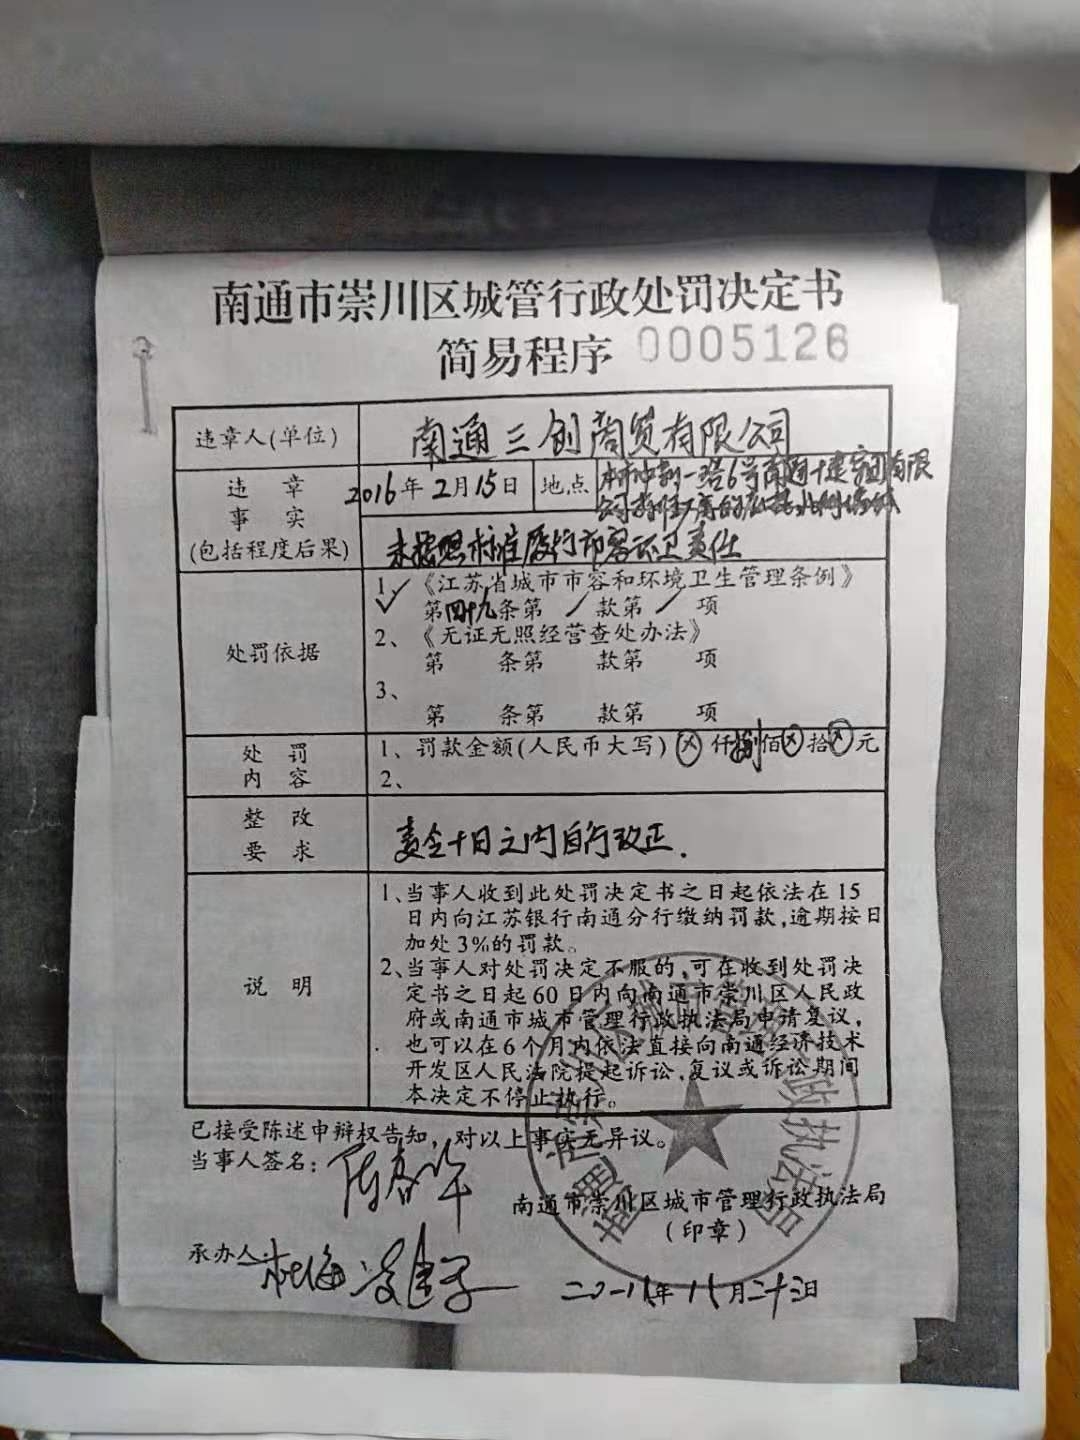 南通市崇川区城管行政处罚决定书
简易程序 0005126
违章人(单位) 南通三创商贸有限公司
违章事实(包括程度后果) 2016年2月15日 地点
未按照标准履行市容环卫责任
处罚依据
1、✓《江苏省城市市容和环境卫生管理条例》
✓ 第四十九条第/款第/项
2、《无证无照经营查处办法》
第 条第 款第 项
3、
第 条第 款第 项
处罚内容
1、罚款金额(人民币大写)ⓧ仟捌佰ⓧ拾ⓧ元
2、
整改要求 责令十日之内自行改正.
说明
1、当事人收到此处罚决定书之日起依法在15
日内向江苏银行南通分行缴纳罚款,逾期按日
加处3%的罚款。
2、当事人对处罚决定不服的,可在收到处罚决
定书之日起60日内向南通市崇川区人民政
府或南通市城市管理行政执法局申请复议,
也可以在6个月内依法直接向南通经济技术
开发区人民法院提起诉讼,复议或诉讼期间
本决定不停止执行。
已接受陈述申辩权告知,对以上事实无异议。
当事人签名:
南通市崇川区城市管理行政执法局
(印章)
承办人: